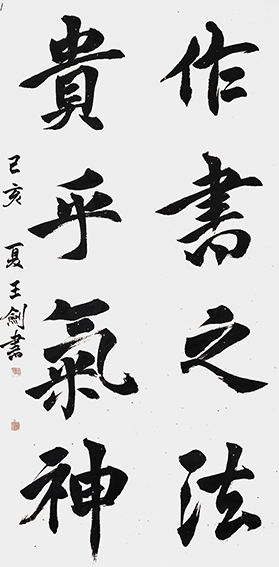 作書之法
貴乎氣神
己亥夏王劍書